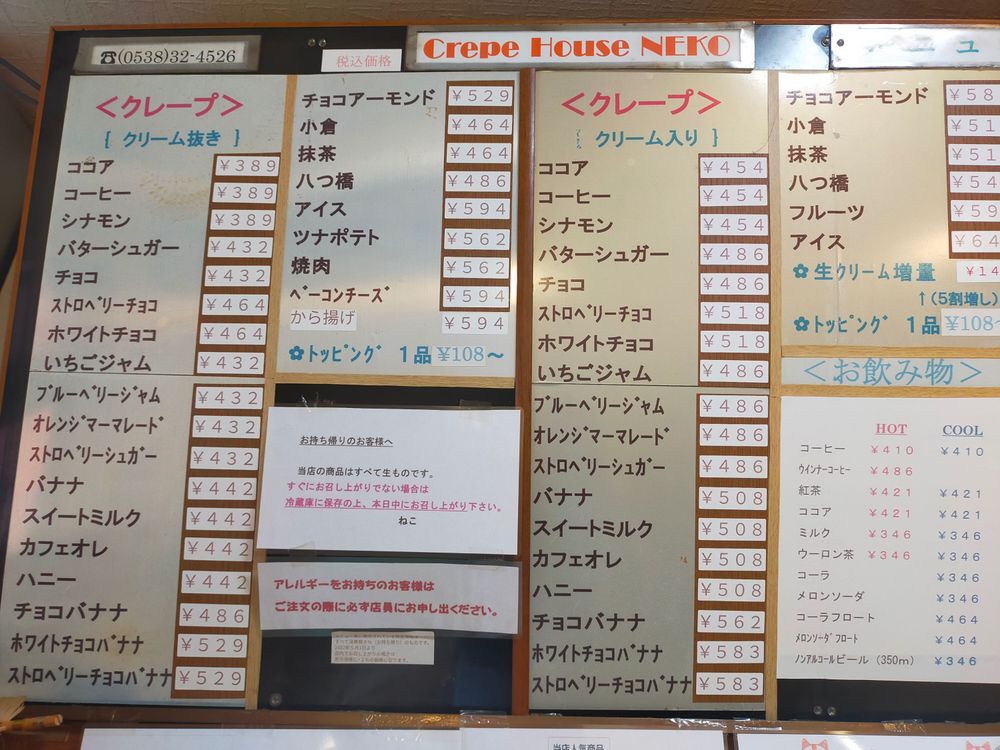 ☎(0538)32-4526
税込価格
Crepe House NEKO
ニュ
<クレープ>
{ クリーム抜き }
ココア ¥389
コーヒー ¥389
シナモン ¥389
バターシュガー ¥432
チョコ ¥432
ストロベリーチョコ ¥464
ホワイトチョコ ¥464
いちごジャム ¥432
ブルーベリージャム ¥432
オレンジマーマレード ¥432
ストロベリーシュガー ¥432
バナナ ¥442
スイートミルク ¥442
カフェオレ ¥442
ハニー ¥442
チョコバナナ ¥486
ホワイトチョコバナナ ¥529
ストロベリーチョコバナナ ¥529
チョコアーモンド ¥529
小倉 ¥464
抹茶 ¥464
八つ橋 ¥486
アイス ¥594
ツナポテト ¥562
焼肉 ¥562
ベーコンチーズ ¥594
から揚げ ¥594
✿トッピング 1品¥108~
お持ち帰りのお客様へ
当店の商品はすべて生ものです。
すぐにお召し上がりでない場合は
冷蔵庫に保存の上、本日中にお召し上がり下さい。
ねこ
アレルギーをお持ちのお客様は
ご注文の際に必ず店員にお申し出ください。
<クレープ>
{ クリーム入り }
ココア ¥454
コーヒー ¥454
シナモン ¥454
バターシュガー ¥486
チョコ ¥486
ストロベリーチョコ ¥518
ホワイトチョコ ¥518
いちごジャム ¥486
ブルーベリージャム ¥486
オレンジマーマレード ¥486
ストロベリーシュガー ¥486
バナナ ¥508
スイートミルク ¥508
カフェオレ ¥508
ハニー ¥508
チョコバナナ ¥562
ホワイトチョコバナナ ¥583
ストロベリーチョコバナナ ¥583
チョコアーモンド ¥58
小倉 ¥51
抹茶 ¥51
八つ橋 ¥54
フルーツ ¥59
アイス ¥64
✿生クリーム増量 ¥14
↑(5割増し)
✿トッピング 1品¥108
<お飲み物>
HOT COOL
コーヒー ¥410 ¥410
ウインナーコーヒー ¥486
紅茶 ¥421 ¥421
ココア ¥421 ¥421
ミルク ¥346 ¥346
ウーロン茶 ¥346 ¥346
コーラ ¥346
メロンソーダ ¥346
コーラフロート ¥464
メロンソーダフロート ¥464
ノンアルコールビール (350m) ¥346
当店人気商品